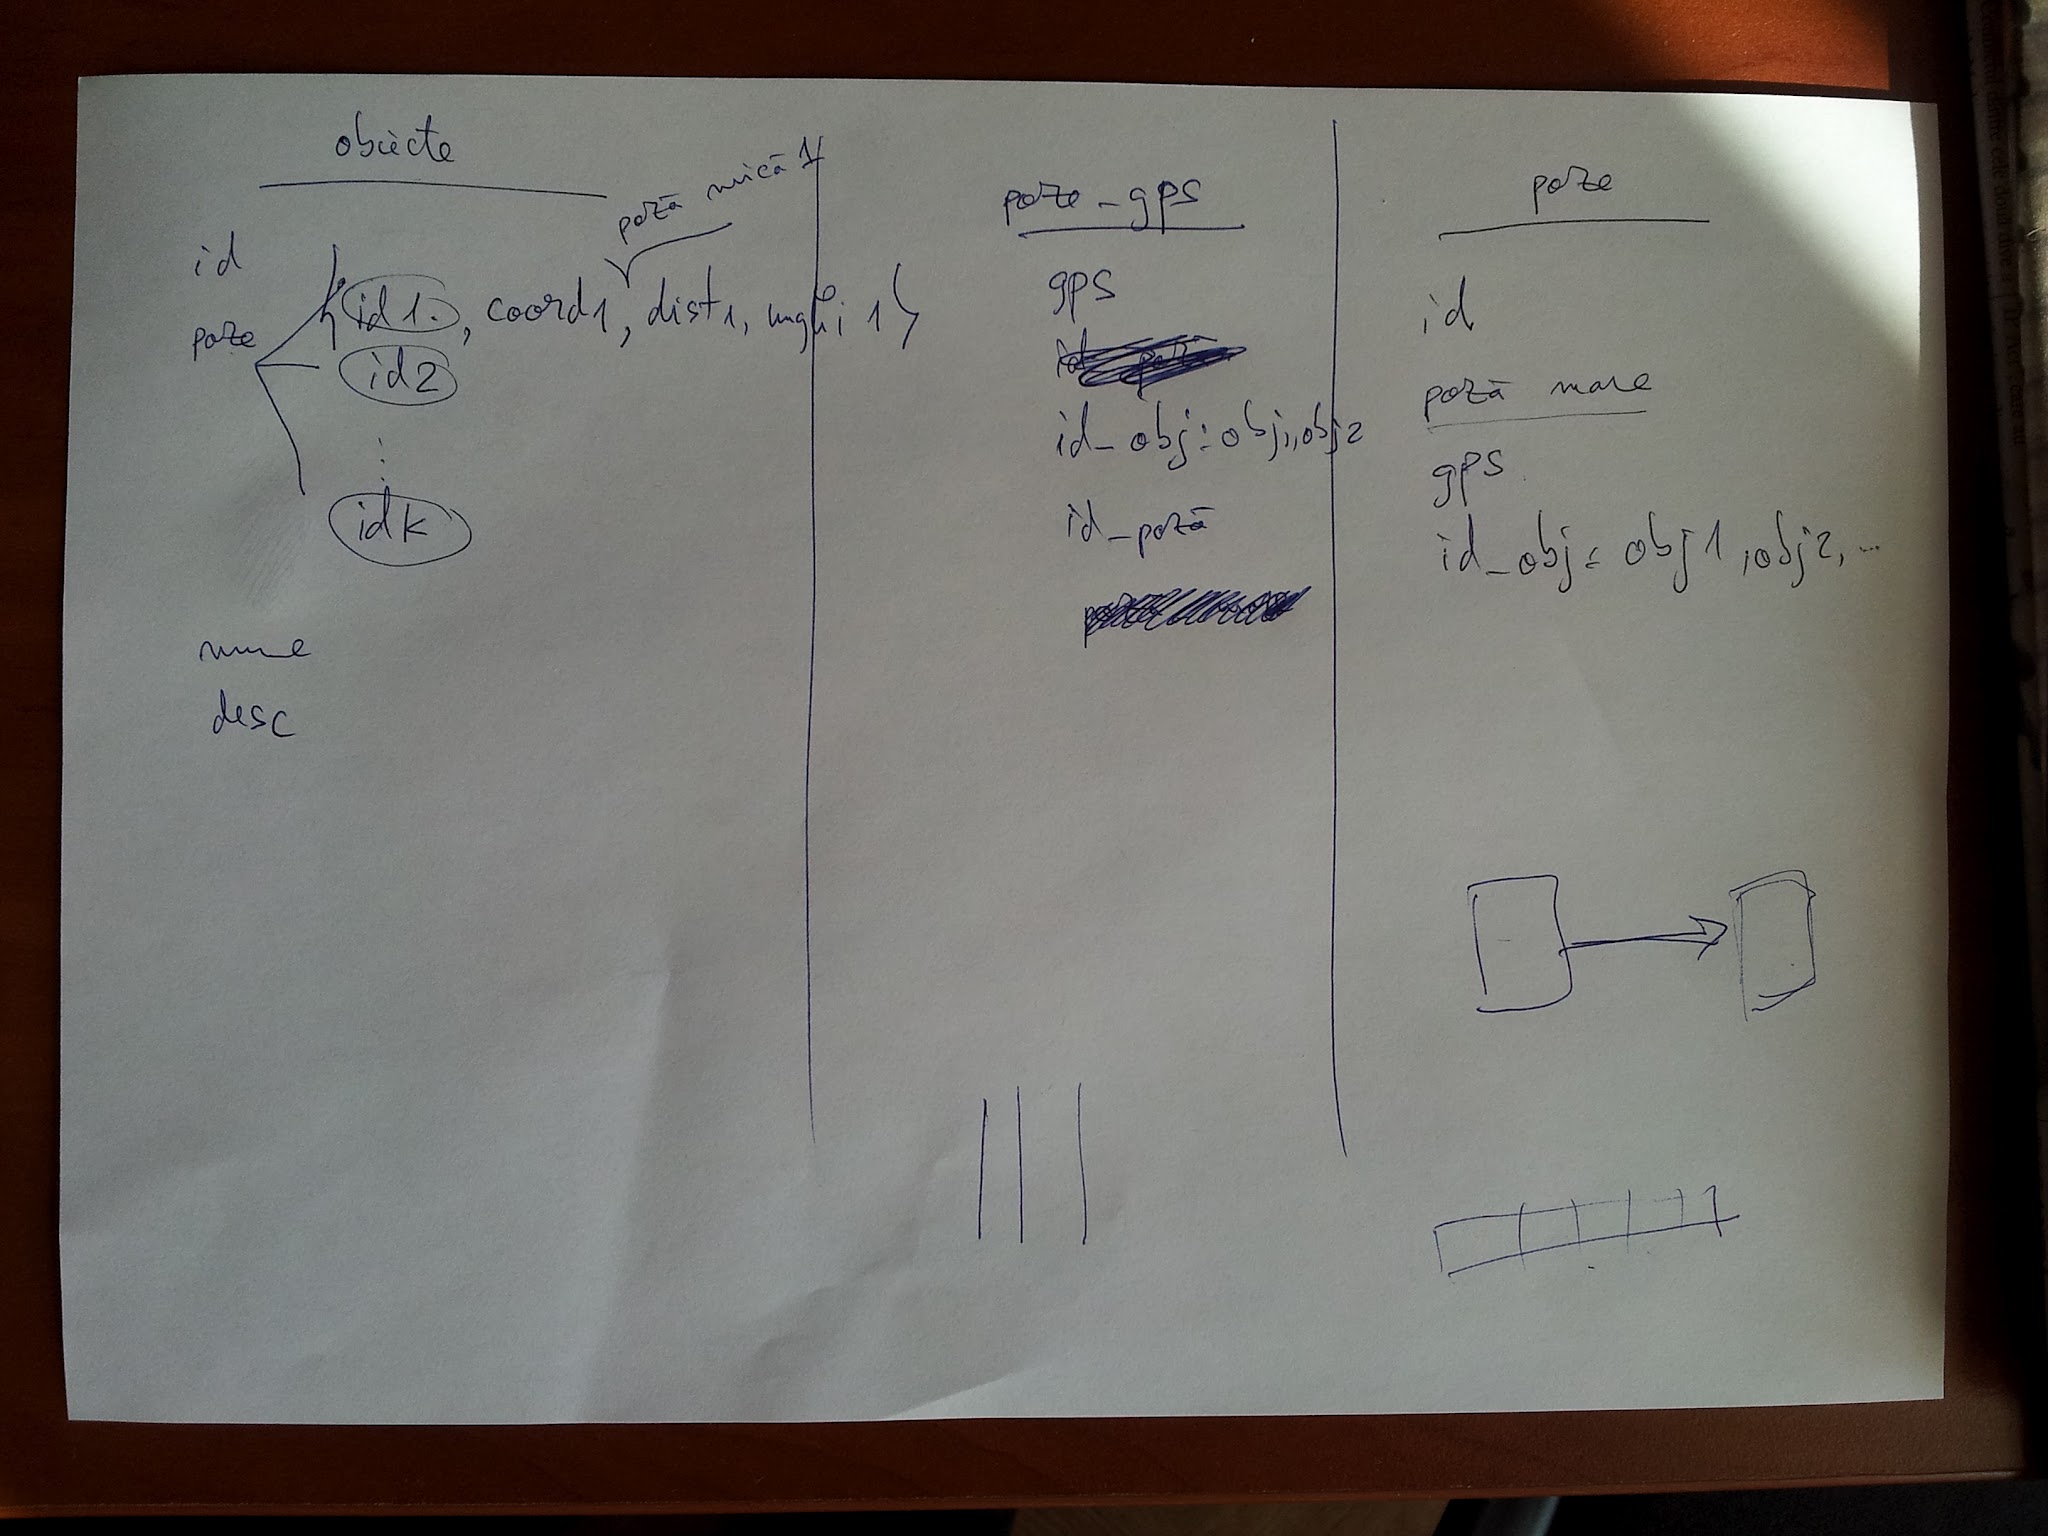 obiecte
poză mică 1
id
poze { id1, coord1, dist1, unghi 1 }
id2
⋮
idk
nume
desc
poze_gps
gps
id_obj: obj1, obj2
id_poză
poze
id
poză mare
gps
id_obj: obj1, obj2, ...